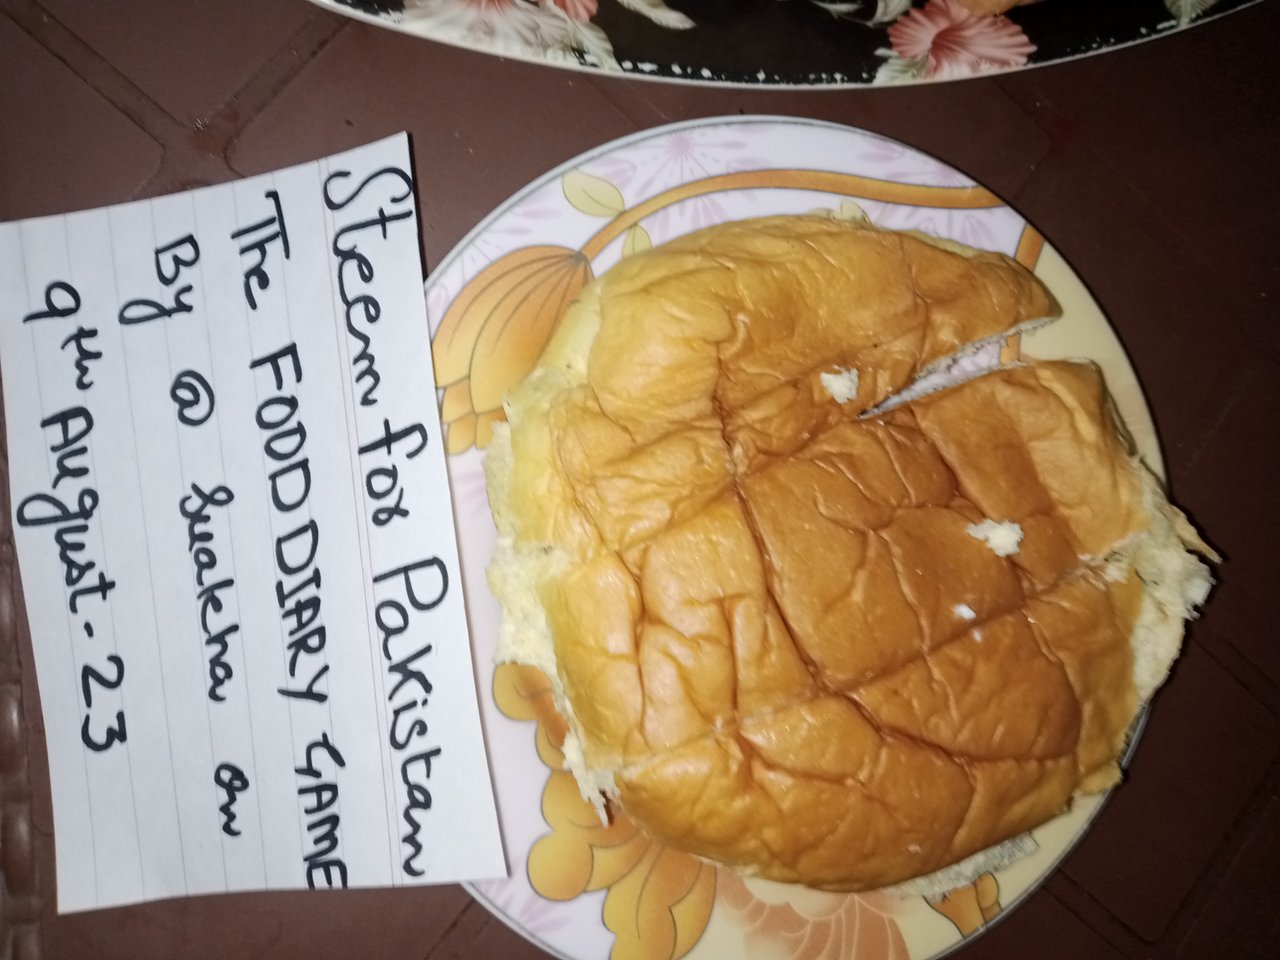 Steem for Pakistan
The FOOD DIARY GAME
By @ suakha on
9th August - 23